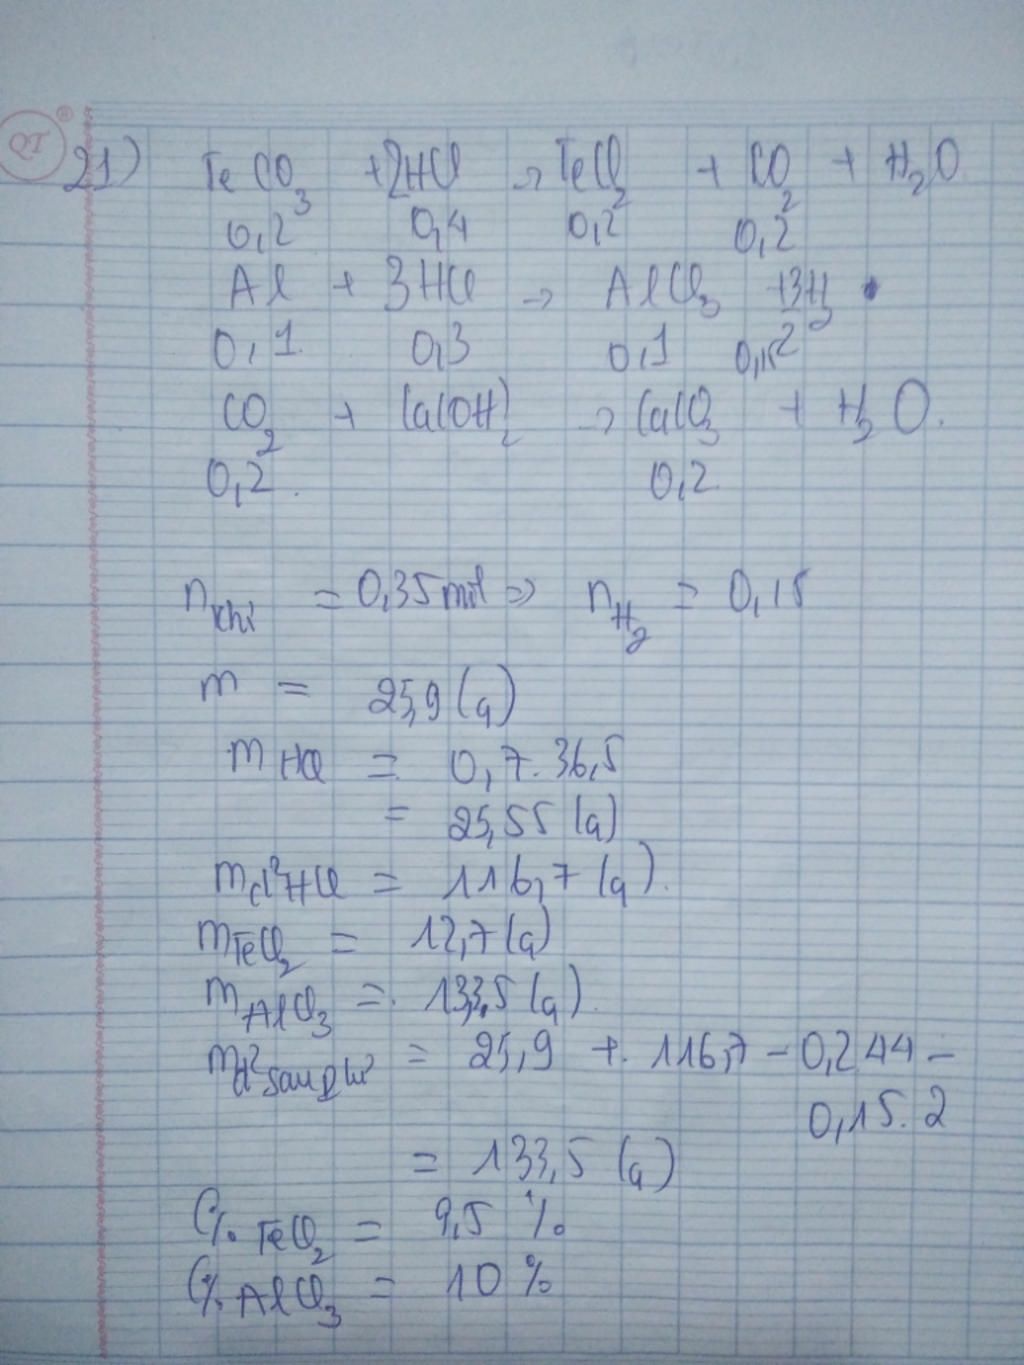 QT
21) FeCO3 + 2HCl → FeCl2 + CO2 + H2O
0,2 0,4 0,2 0,2
Al + 3HCl → AlCl3 + 3H2
0,1 0,3 0,1 0,15 2
CO2 + Ca(OH)2 → CaCO3 + H2O.
0,2. 0,2
nkhí = 0,35 mol => nH2 = 0,15
m = 25,9 (g)
mHCl = 0,7. 36,5
= 25,55 (g)
md2HCl = 116,7 (g).
mFeCl2 = 12,7 (g)
mAlCl3 = 133,5 (g).
md2 sau pứ = 25,9 + 116,7 - 0,2 44 -
0,15. 2
= 133,5 (g)
C% FeCl2 = 9,5 %
C% AlCl3 = 10 %